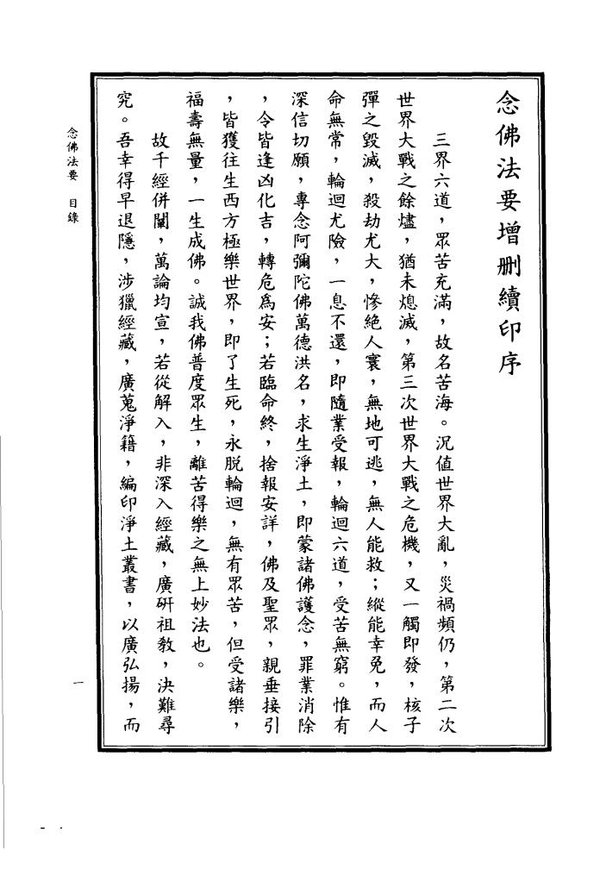 念佛法要增刪續印序
三界六道，眾苦充滿，故名苦海。況值世界大亂，災禍頻仍，第二次
世界大戰之餘燼，猶未熄滅，第三次世界大戰之危機，又一觸即發，核子
彈之毀滅，殺劫尤大，慘絕人寰，無地可逃，無人能救；縱能幸免，而人
命無常，輪迴尤險，一息不還，即隨業受報，輪迴六道，受苦無窮。惟有
深信切願，專念阿彌陀佛萬德洪名，求生淨土，即蒙諸佛護念，罪業消除
，令皆逢凶化吉，轉危為安；若臨命終，捨報安詳，佛及聖眾，親垂接引
，皆獲往生西方極樂世界，即了生死，永脫輪迴，無有眾苦，但受諸樂，
福壽無量，一生成佛。誠我佛普度眾生，離苦得樂之無上妙法也。
故千經併闡，萬論均宣，若從解入，非深入經藏，廣研祖教，決難尋
究。吾幸得早退隱，涉獵經藏，廣蒐淨籍，編印淨土叢書，以廣弘揚，而
念佛法要　目錄
一